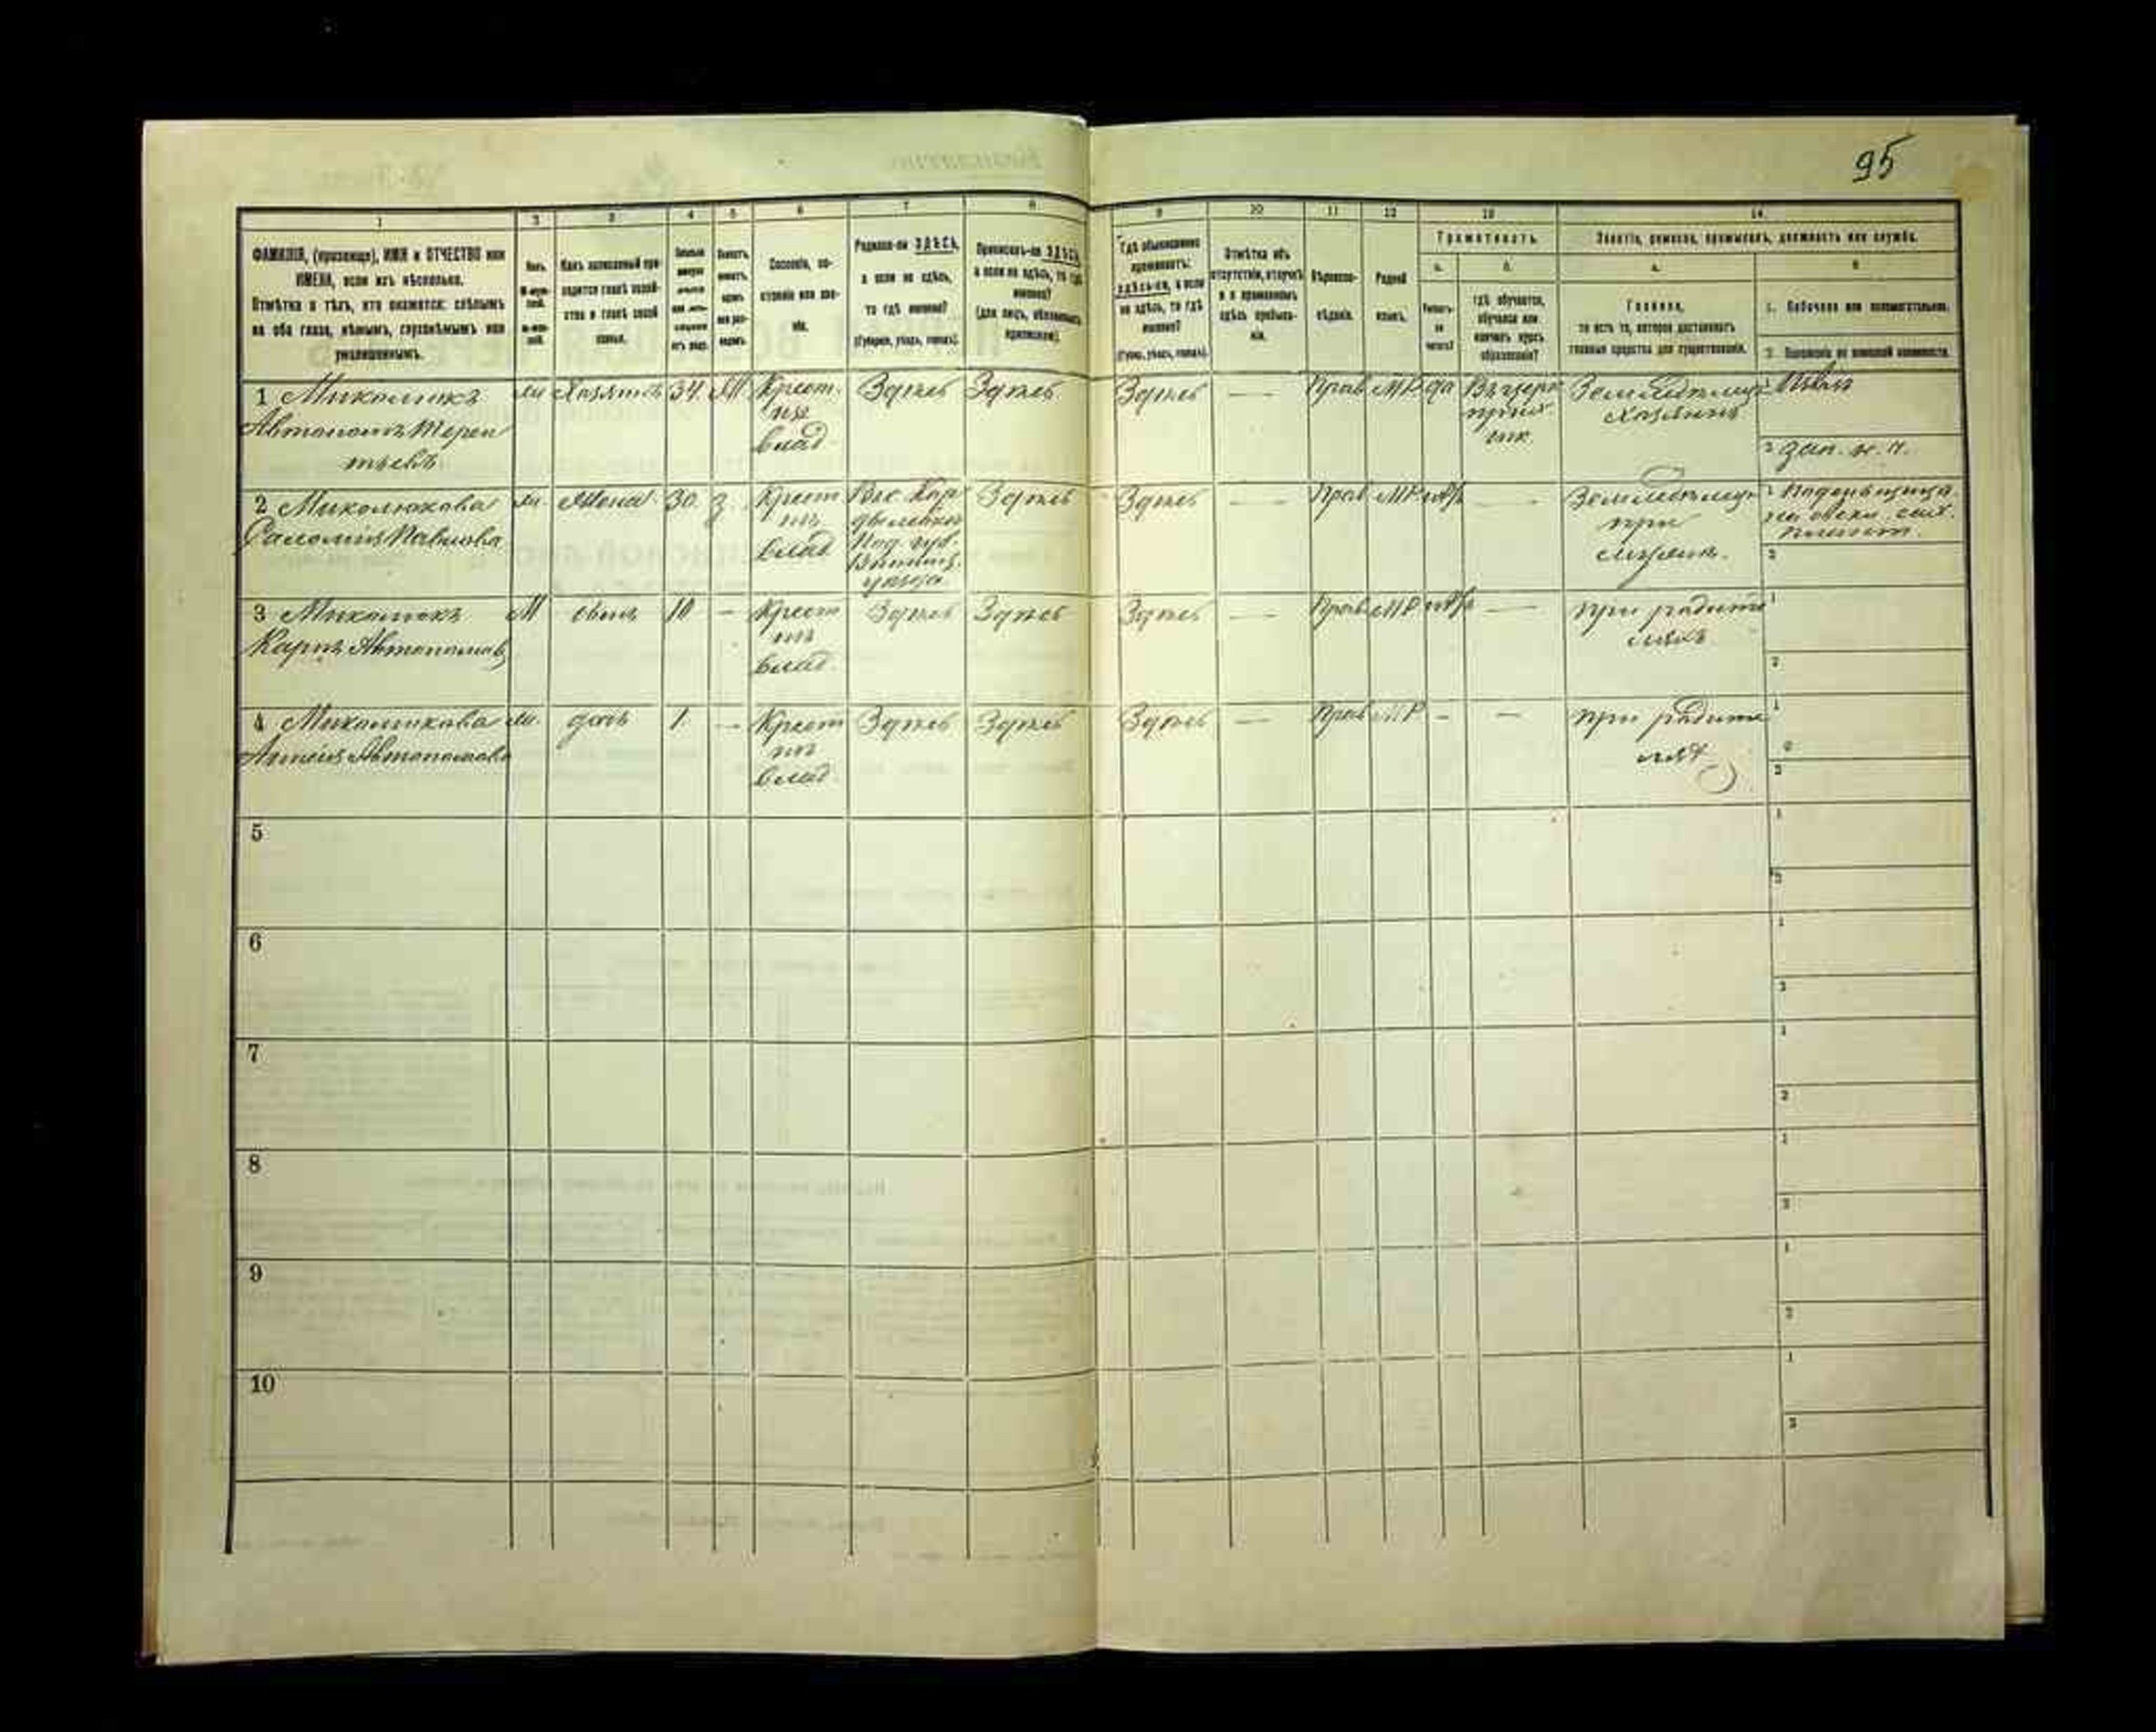 95
1 2 3 4 5 6 7 8 9 10 11 12 13 14
ФАМИЛІЯ, (прозвище), ИМЯ и ОТЧЕСТВО или
ИМЕНА, если ихъ нѣсколько.
Отмѣтка о тѣхъ, кто окажется: слѣпымъ
на оба глаза, нѣмымъ, глухонѣмымъ или
умалишеннымъ.
Полъ.
Какъ записанный при-
ходится главѣ хозяй-
ства и главѣ своей
семьи.
Сословіе, со-
стояніе или зва-
ніе.
Родился-ли ЗДѢСЬ,
а если не здѣсь,
то гдѣ именно?
(Губернія, уѣздъ, городъ).
Приписанъ-ли ЗДѢСЬ,
а если не здѣсь, то гдѣ
именно?
(для лицъ, обязанныхъ
припискою).
Гдѣ обыкновенно
проживаетъ:
здѣсь-ли, а если
не здѣсь, то гдѣ
именно?
(Губер., уѣздъ, городъ).
Отмѣтка объ
отсутствіи, отлучкѣ
и о временномъ
здѣсь пребыва-
ніи.
Вѣроиспо-
вѣданіе.
Родной
языкъ.
Грамотность.
а. б.
Умѣетъ-
ли
читать?
гдѣ обучается,
обучался или
кончилъ курсъ
образованія?
Занятіе, ремесло, промыселъ, должность или служба.
а. б.
Главное,
то есть то, которое доставляетъ
главныя средства для существованія.
1. Побочное или вспомогательное.
2. Положеніе по воинской повинности.
1 Миколюкъ
Автономъ Терен
тьевъ
м Хозяинъ 34. Крест.
изъ
влад.
Здѣсь Здѣсь Здѣсь — Прав МР да
Въ церк
прих
шк.
Земледѣлец
хозяинъ
1 Пѣвчій
2
2 Миколюкова
Саломія Павлова
жена 30. Крест
изъ
влад
Под. губ.
Винниц.
уѣзда
Здѣсь Здѣсь — Прав МР нѣт —
Земледѣлец
при
мужѣ.
1 Поденщица
2
3 Миколюкъ
Карпъ Автономов
М сынъ 10 — Крест
изъ
влад.
Здѣсь Здѣсь Здѣсь — Прав МР нѣт —
при родите
ляхъ
1
2
4 Миколюкова
Автономова
дочь 1. — Крест
изъ
влад.
Здѣсь Здѣсь Здѣсь — Прав МР — —
при родите
лях
1
2
5
1
2
6
1
2
7
1
2
8
1
2
9
1
2
10
1
2